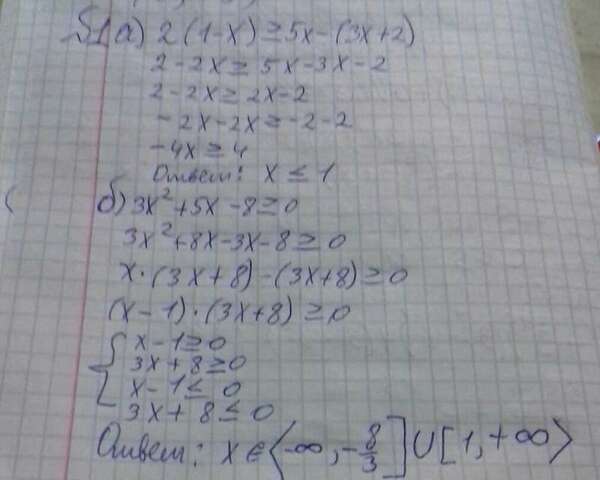 51 а) 2(1-x) ≥ 5x-(3x+2)
2-2x ≥ 5x-3x-2
2-2x ≥ 2x-2
-2x-2x ≥ -2-2
-4x ≥ 4
Ответ: x ≤ 1
б) 3x²+5x-8≥0
3x²+8x-3x-8≥0
x·(3x+8)-(3x+8)≥0
(x-1)·(3x+8)≥0
{ x-1≥0
3x+8≥0
x-1≤0
3x+8≤0
Ответ: x∈⟨-∞,-8/3]∪[1,+∞⟩